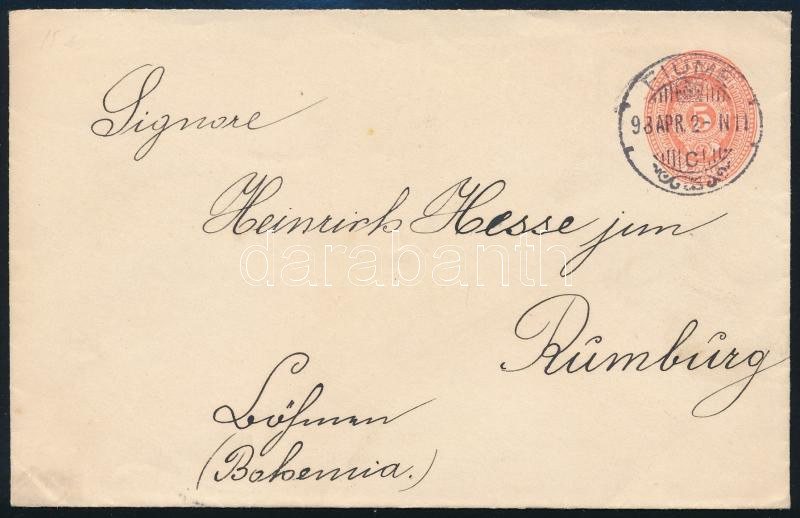 FIUME
5
98 APR. 2- N 11
C
Signore
Heinrich Hesse jun
darabanth
Rumburg
Böhmen
(Bohemia.)